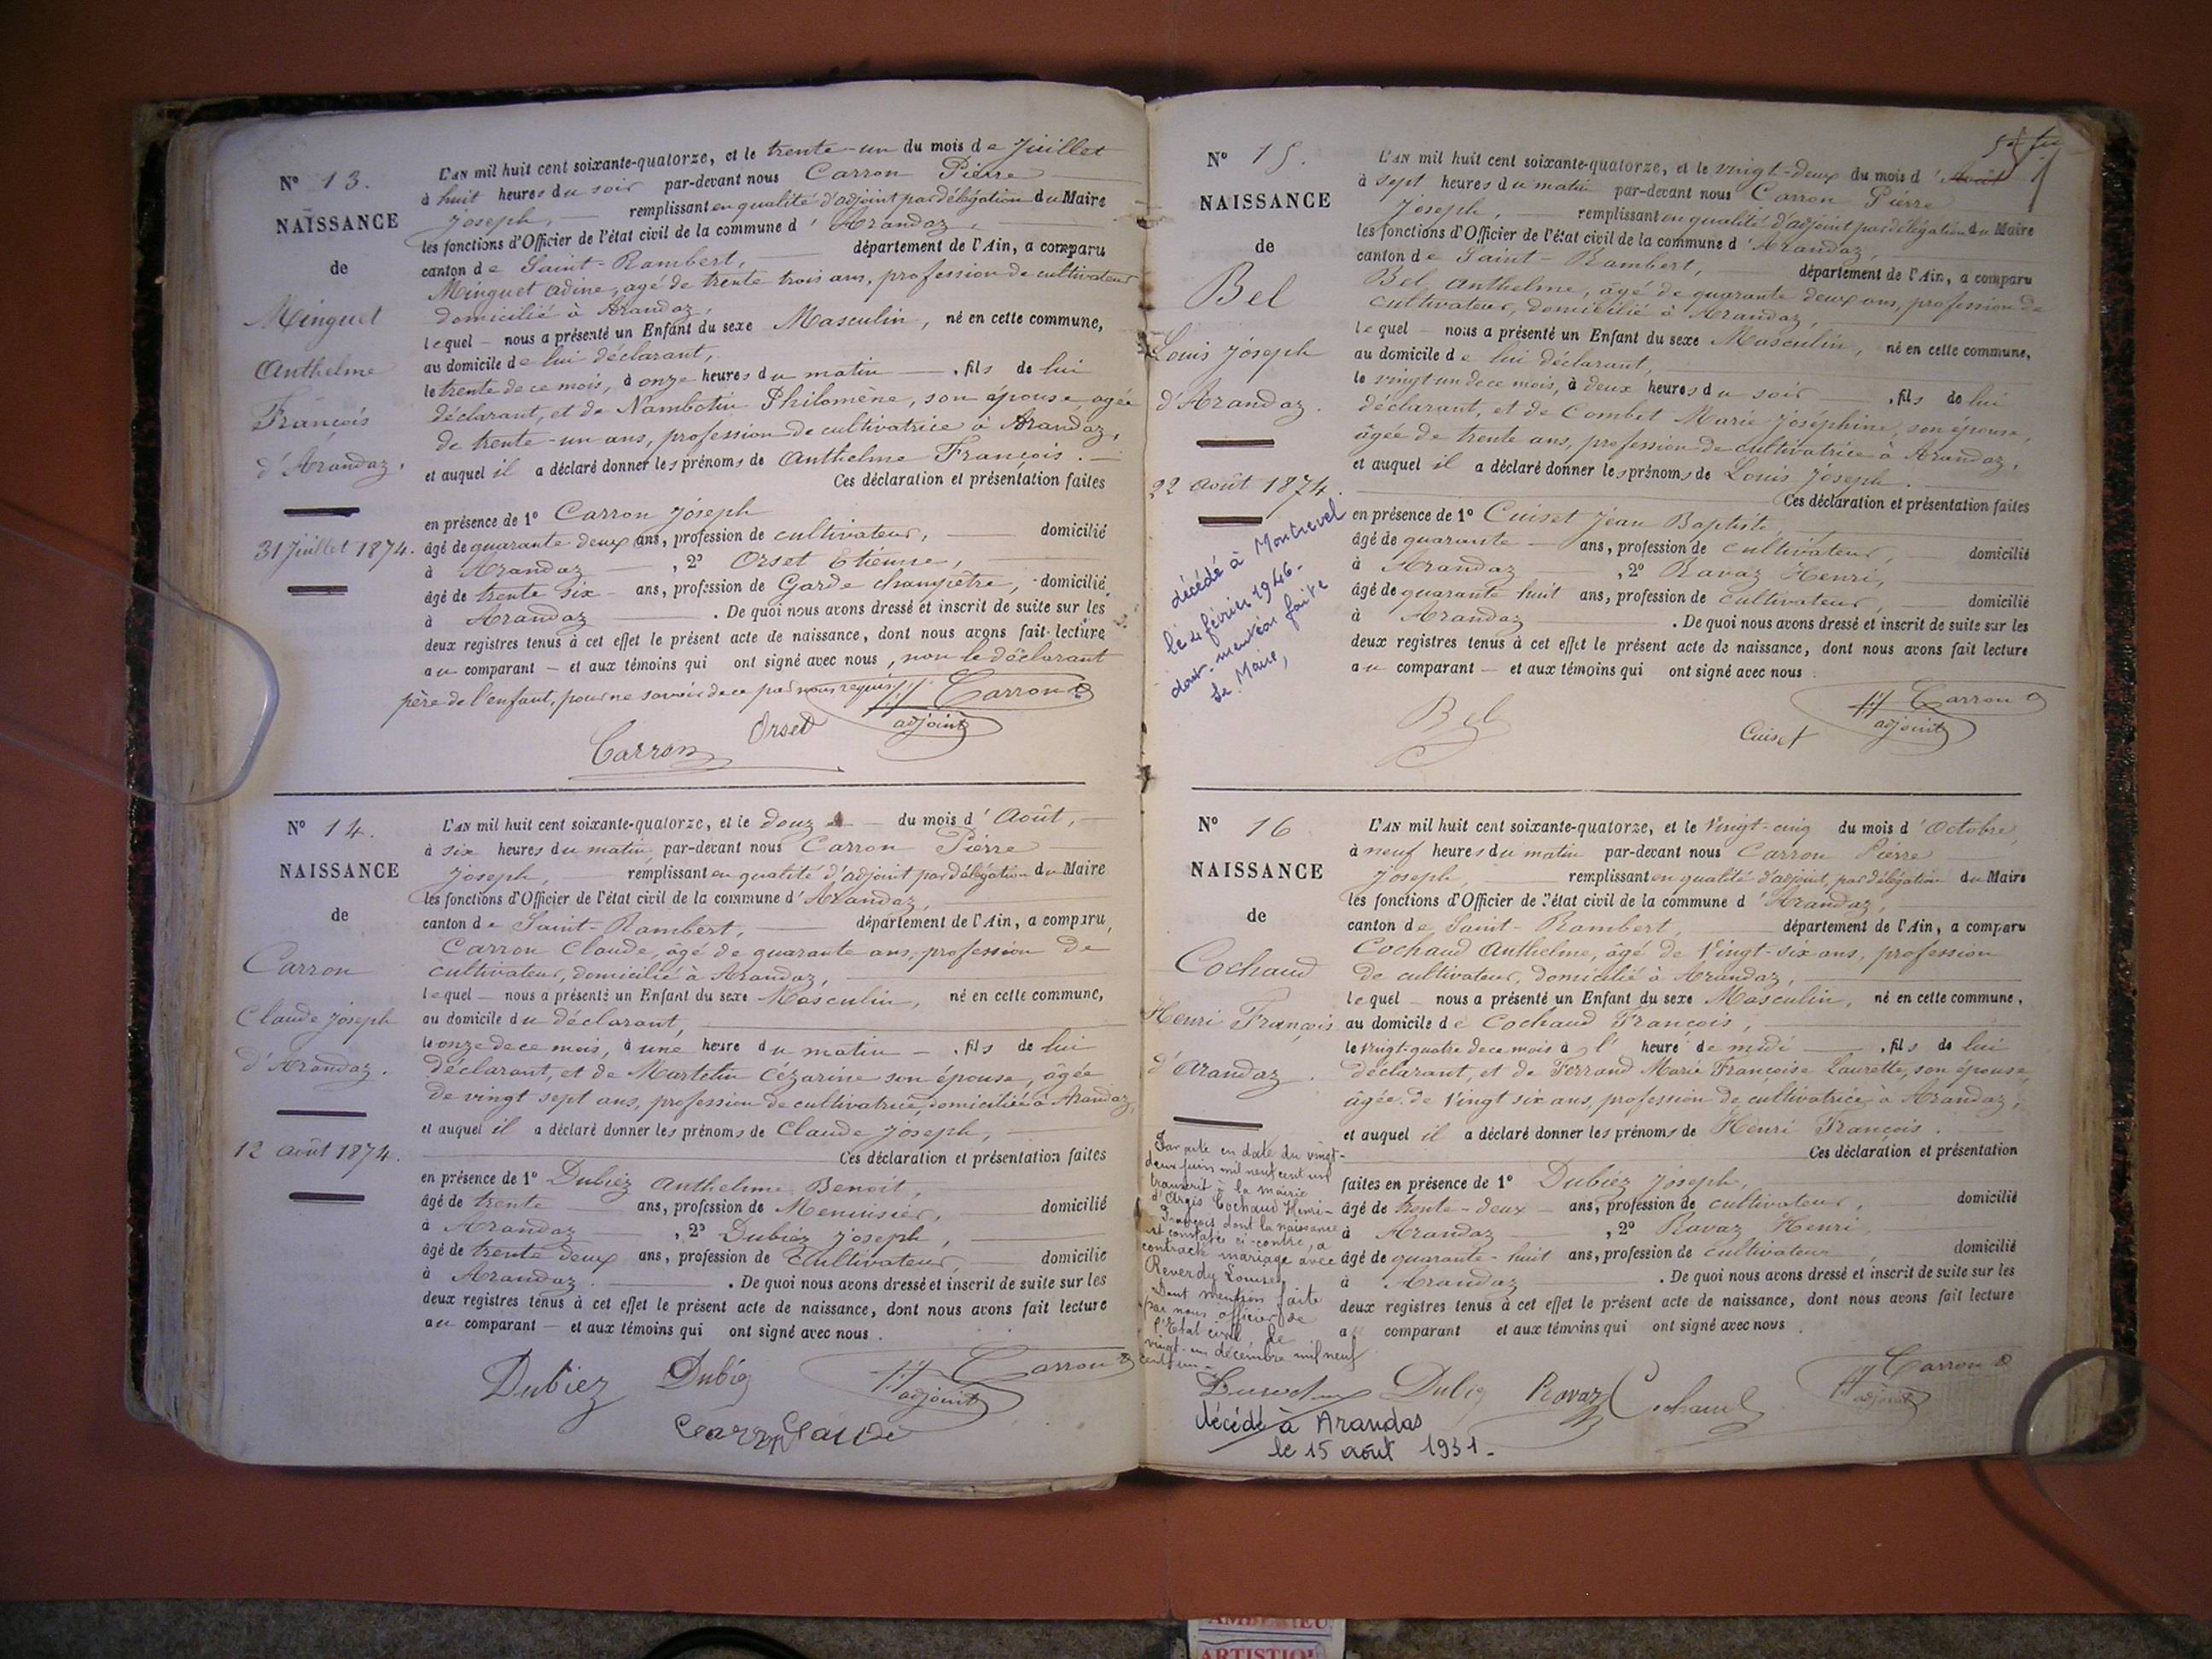 N° 13.
NAISSANCE
de
Minguet
Anthelme
François
d'Arandaz.
31 Juillet 1874.
L'AN mil huit cent soixante-quatorze, et le trente-un du mois de Juillet
à huit heures du soir par-devant nous Carron Pierre
Joseph, remplissant en qualité d'adjoint par délégation du Maire
les fonctions d'Officier de l'état civil de la commune d'Arandaz,
canton de Saint-Rambert, département de l'Ain, a comparu
Minguet Adine, agé de trente trois ans, profession de cultivateur
domicilié à Arandaz,
lequel nous a présenté un Enfant du sexe Masculin, né en cette commune,
au domicile de lui déclarant,
le trente de ce mois, à onze heures du matin, fils de lui
déclarant, et de Nambotin Philomène, son épouse, agée
de trente-un ans, profession de cultivatrice à Arandaz,
et auquel il a déclaré donner les prénoms de Anthelme François.
Ces déclaration et présentation faites
en présence de 1° Carron Joseph
âgé de quarante deux ans, profession de cultivateur, domicilié
à Arandaz, 2° Orset Etienne,
âgé de trente six ans, profession de Garde champêtre, domicilié
à Arandaz. De quoi nous avons dressé et inscrit de suite sur les
deux registres tenus à cet effet le présent acte de naissance, dont nous avons fait lecture
au comparant et aux témoins qui ont signé avec nous, non le déclarant
père de l'enfant, pour ne savoir de ce par nous requis.
Carron
adjoint
Orset
Carron
N° 14.
NAISSANCE
de
Carron
Claude Joseph
d'Arandaz.
12 août 1874.
L'AN mil huit cent soixante-quatorze, et le douze du mois d'Août,
à six heures du matin, par-devant nous Carron Pierre
Joseph, remplissant en qualité d'adjoint par délégation du Maire
les fonctions d'Officier de l'état civil de la commune d'Arandaz,
canton de Saint-Rambert, département de l'Ain, a comparu,
Carron Claude, âgé de quarante ans, profession de
cultivateur, domicilié à Arandaz,
lequel nous a présenté un Enfant du sexe Masculin, né en cette commune,
au domicile du déclarant,
le onze de ce mois, à une heure du matin, fils de lui
déclarant, et de Martelin Cézarine son épouse, âgée
de vingt sept ans, profession de cultivatrice, domiciliée à Arandaz,
et auquel il a déclaré donner les prénoms de Claude Joseph,
Ces déclaration et présentation faites
en présence de 1° Dubiez Anthelme Benoit,
âgé de trente ans, profession de Menuisier, domicilié
à Arandaz, 2° Dubiez Joseph,
âgé de trente deux ans, profession de Cultivateur, domicilié
à Arandaz. De quoi nous avons dressé et inscrit de suite sur les
deux registres tenus à cet effet le présent acte de naissance, dont nous avons fait lecture
au comparant et aux témoins qui ont signé avec nous.
Dubiez Dubiez Carron
adjoint
Carron Claude
N° 15.
NAISSANCE
de
Bel
Louis Joseph
d'Arandaz.
22 août 1874.
décédé à Montrevel
le 21 février 1946-
dont mention faite
Le Maire,
L'AN mil huit cent soixante-quatorze, et le vingt-deux du mois d'Août
à sept heures du matin par-devant nous Carron Pierre
Joseph, remplissant en qualité d'adjoint par délégation du Maire
les fonctions d'Officier de l'état civil de la commune d'Arandaz,
canton de Saint-Rambert, département de l'Ain, a comparu
Bel Anthelme, âgé de quarante deux ans, profession de
cultivateur, domicilié à Arandaz,
lequel nous a présenté un Enfant du sexe Masculin, né en cette commune,
au domicile de lui déclarant,
le vingt un de ce mois, à deux heures du soir, fils de lui
déclarant, et de Combet Marie Joséphine, son épouse,
âgée de trente ans, profession de cultivatrice à Arandaz,
et auquel il a déclaré donner les prénoms de Louis Joseph.
Ces déclaration et présentation faites
en présence de 1° Cuiset Jean Baptiste,
âgé de quarante ans, profession de cultivateur, domicilié
à Arandaz, 2° Ravaz Henri,
âgé de quarante huit ans, profession de cultivateur, domicilié
à Arandaz. De quoi nous avons dressé et inscrit de suite sur les
deux registres tenus à cet effet le présent acte de naissance, dont nous avons fait lecture
au comparant et aux témoins qui ont signé avec nous.
Bel Cuiset Carron
adjoint
N° 16
NAISSANCE
de
Cochaud
Henri François
d'Arandaz.
Par acte en date du vingt-
deux juin mil neuf cent un
transcrit à la mairie
d'Argis Cochaud Henri-
François dont la naissance
est constatée ci-contre, a
contracté mariage avec
Reverdy Louise
Dont mention faite
par nous officier de
l'Etat civil, le
vingt-un décembre mil neuf
cent un-
L'AN mil huit cent soixante-quatorze, et le Vingt-cinq du mois d'Octobre,
à neuf heures du matin par-devant nous Carron Pierre
Joseph, remplissant en qualité d'adjoint, par délégation du Maire
les fonctions d'Officier de l'état civil de la commune d'Arandaz,
canton de Saint-Rambert, département de l'Ain, a comparu
Cochaud Anthelme, âgé de Vingt-six ans, profession
de cultivateur, domicilié à Arandaz,
lequel nous a présenté un Enfant du sexe Masculin, né en cette commune,
au domicile de Cochaud François,
le vingt-quatre de ce mois à l'heure de midi, fils de lui
déclarant, et de Ferrand Marie Françoise Laurette, son épouse,
âgée de Vingt six ans, profession de cultivatrice à Arandaz,
et auquel il a déclaré donner les prénoms de Henri François.
Ces déclaration et présentation
faites en présence de 1° Dubiez Joseph,
âgé de trente-deux ans, profession de cultivateur, domicilié
à Arandaz, 2° Ravaz Henri
âgé de quarante-huit ans, profession de cultivateur, domicilié
à Arandaz. De quoi nous avons dressé et inscrit de suite sur les
deux registres tenus à cet effet le présent acte de naissance, dont nous avons fait lecture
au comparant et aux témoins qui ont signé avec nous.
Dubiez Ravaz Cochaud Carron
adjoint
décédé à Arandas
le 15 août 1931-
AMBERIEU
ARTISTIQU